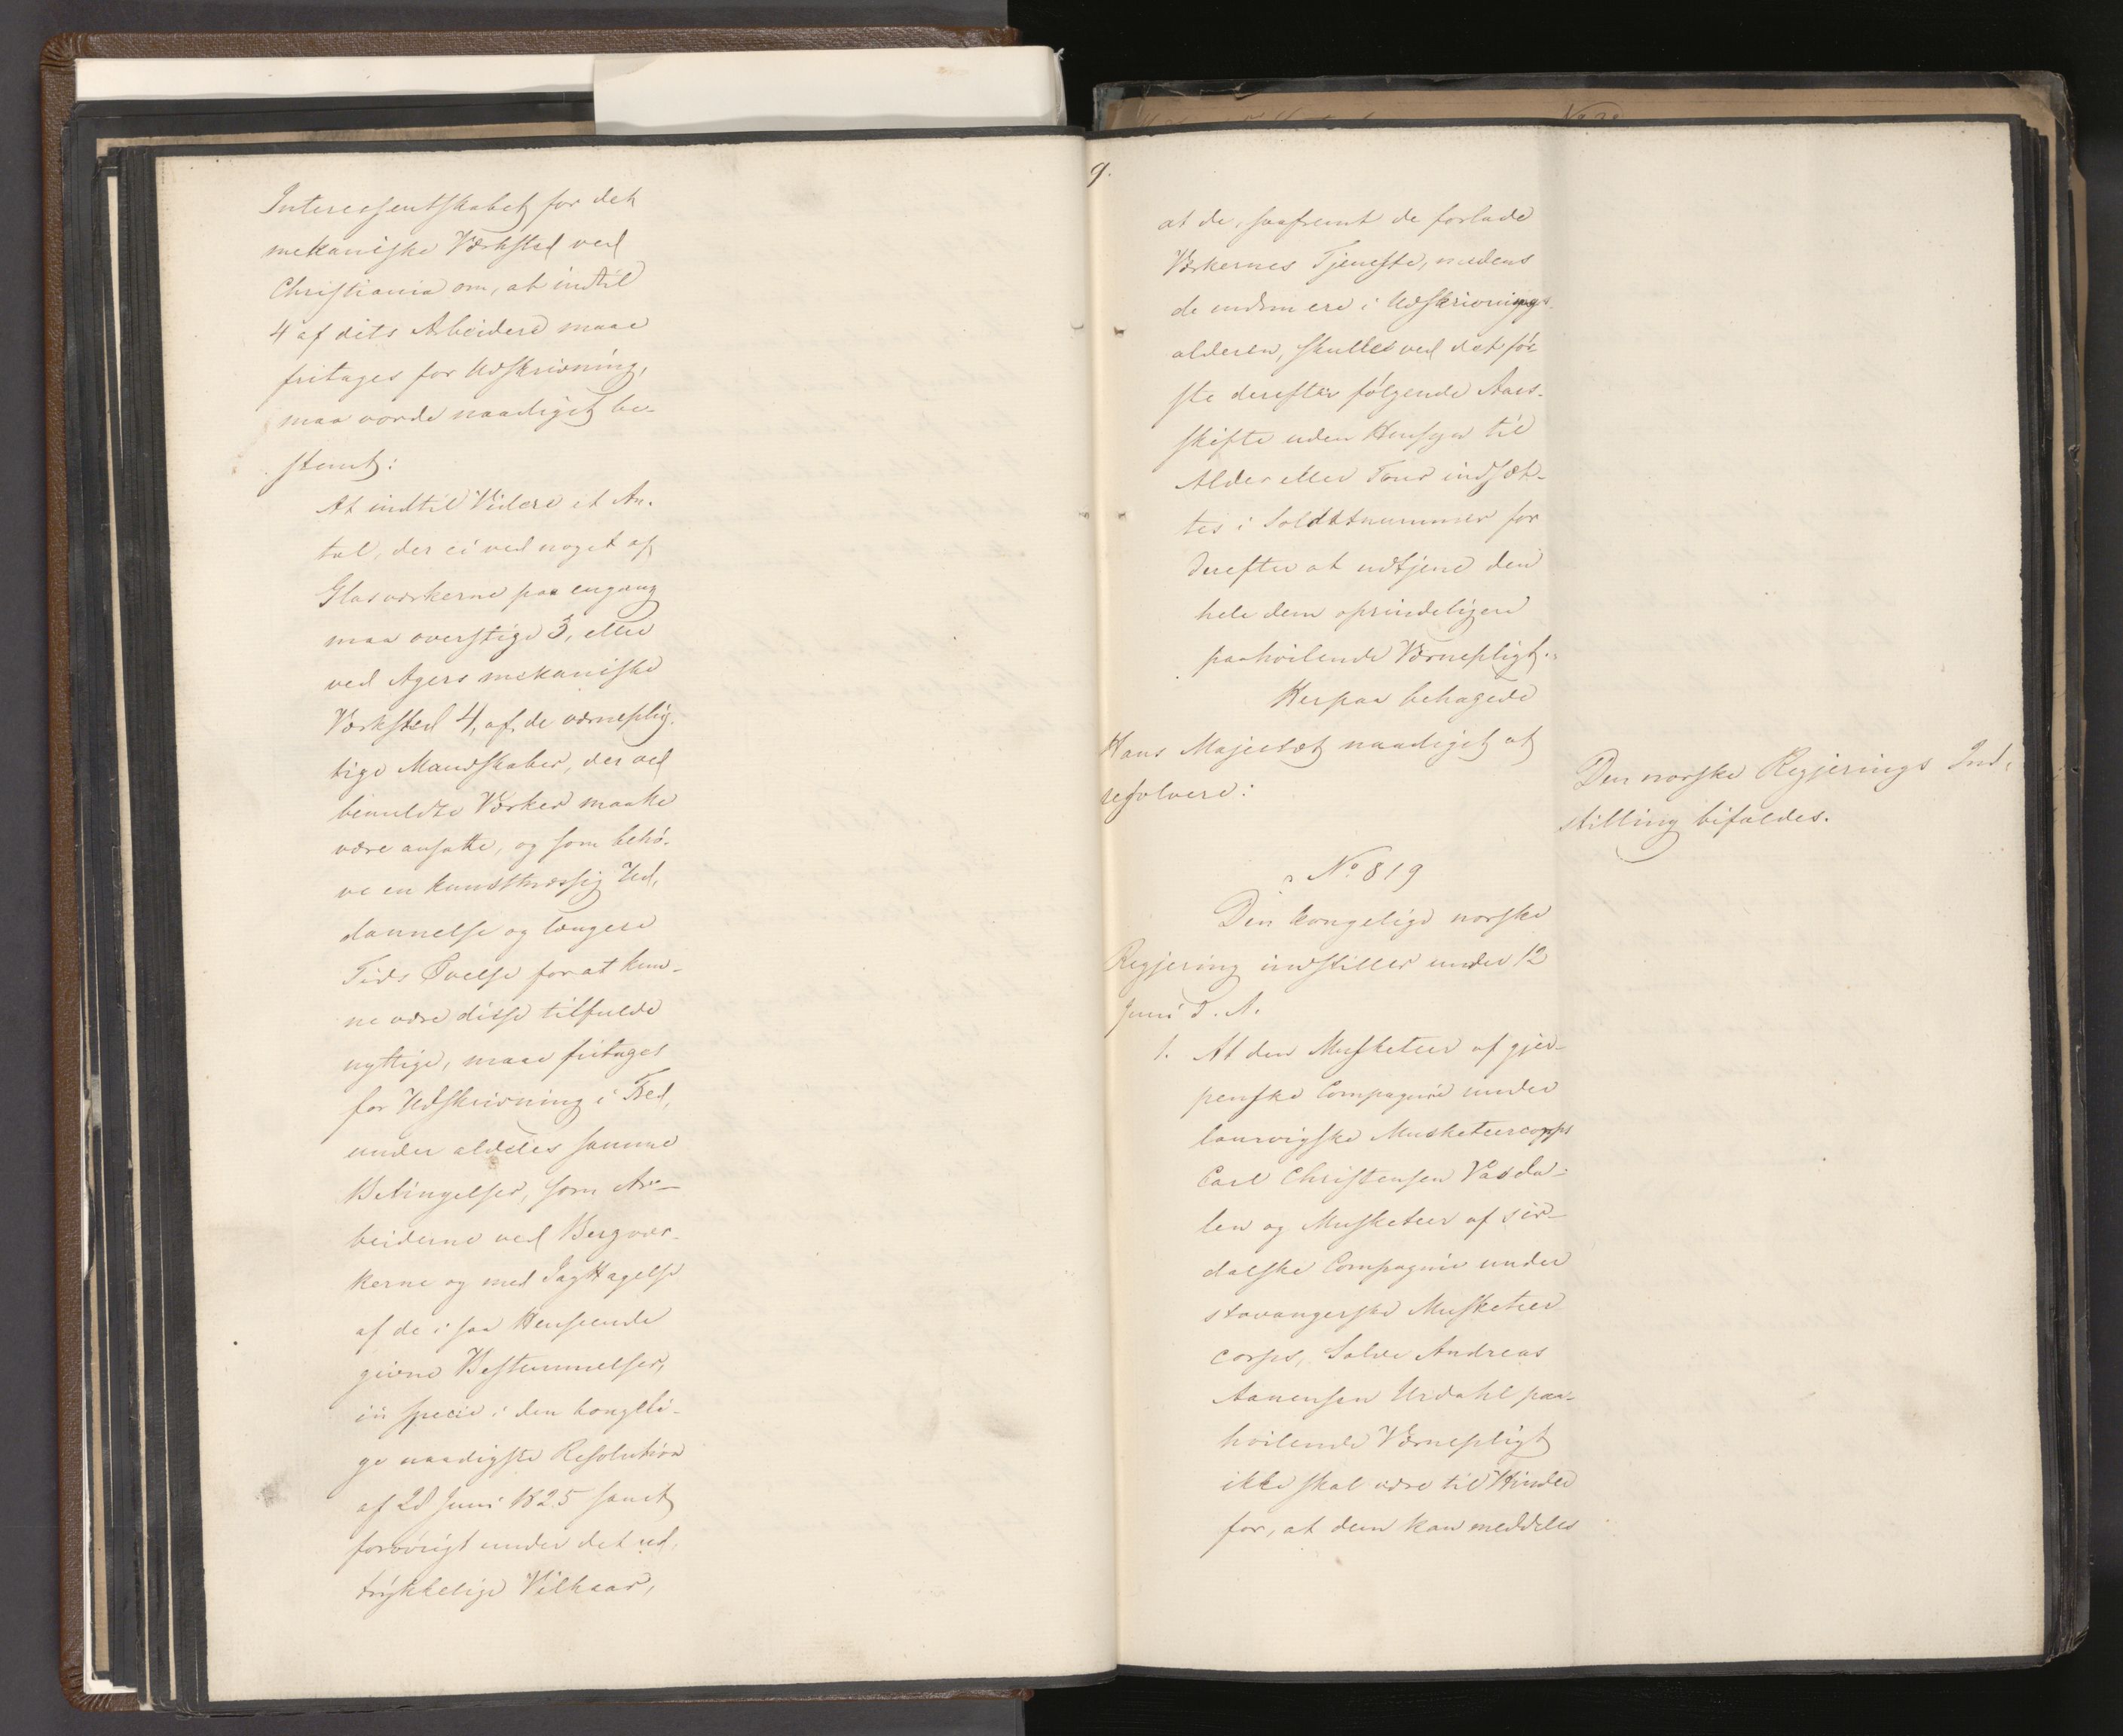 Interessentskabet for det
mekaniske Værksted ved
Christiania om, at indtil
4 af dets Arbeidere maae
fritages for Udskrivning,
maa vorde naadigst be-
stemt:
At indtil Videre et An-
tal, der ei ved noget af
Glasværkerne paa engang
maa overstige 3, eller
ved Agers mekaniske
Værksted 4, af de værneplig-
tige Mandskaber, der ved
benævnte Værker maatte
være ansatte, og som behø-
ve en kunstmæssig Ud-
dannelse og længere
Tids Øvelse for at kun-
ne være disse tilfulde
nyttige, maae fritages
for Udskrivning i Fred,
under aldeles samme
Betingelser, som Ar-
beiderne ved Bergvær-
kerne og med Iagttagelse
af de i saa Henseende
givne Bestemmelser,
in specie i den kongeli-
ge naadigste Resolution
af 28 Juni 1825 samt
forøvrigt under det ud-
trykkelige Vilkaar,
9.
at de, saafremt de forlade
Værkernes Tjeneste, medens
de endnu ere i Udskrivnings-
alderen, skulle ved det før-
ste derefter følgende Aars-
skifte uden Hensyn til
Alder eller Tour indsæt-
tes i Soldatnummer for
derefter at udtjene den
hele dem oprindeligen
paahvilende Værnepligt.
Herpaa behagede
Hans Majestæt naadigst at
resolvere:
Den norske Regjerings Ind-
stilling bifaldes.
No 819
Den kongelige norske
Regjering indstiller under 12
Juni d. A.
1. At den Musketeer af gjer-
penske Compagnie under
laurvigske Musketeercorps
Carl Christensen Vasda-
len og Musketeer af sir-
dalske Compagnie under
stavangerske Musketeer
corps, Salve Andreas
Aanensen Urdahl paa-
hvilende Værnepligt
ikke skal være til Hinder
for, at dem kan meddeles